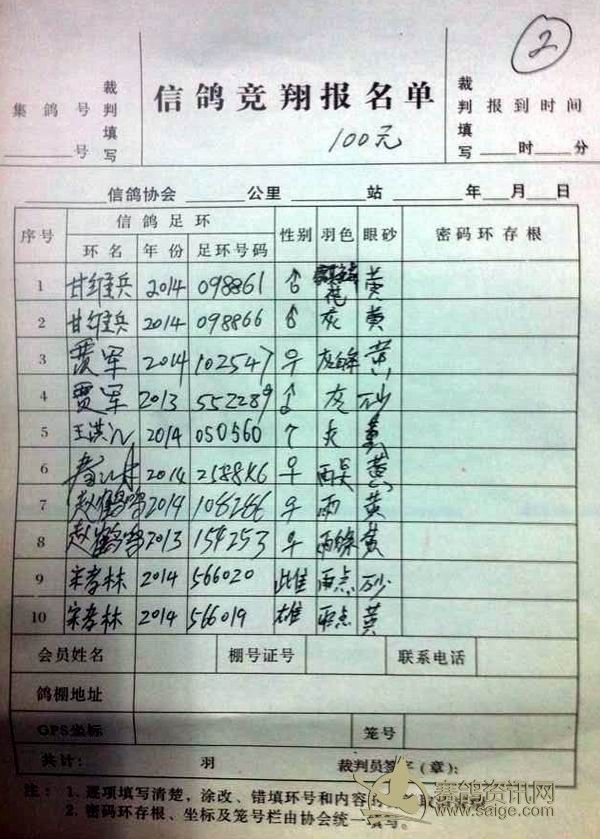 ②
集鸽号 ____号
裁判填写
信鸽竞翔报名单
100元
裁判填写
报到时间 ____时____分
信鸽协会 ______公里 ______站 ______年____月____日
序号 信鸽足环 性别 羽色 眼砂 密码环存根
环名 年份 足环号码
1 甘维兵 2014 098861 ♂ 花 黄
2 甘维兵 2014 098866 ♂ 灰 黄
3 贾军 2014 102547 ♀ 黄
4 贾军 2013 552289 ♂ 灰 砂
5 王洪 2014 050560 黄
6 2014 ♀ 黄
7 赵鹤鸣 2014 ♀ 雨 黄
8 赵鹤鸣 2013 154253 ♀ 黄
9 宋孝林 2014 566020 雌 雨点 砂
10 宋孝林 2014 566019 雄 雨点 黄
会员姓名 棚号证号 联系电话
鸽棚地址
GPS坐标 笼号
共计: 羽 裁判员签字(章):
注: 1. 逐项填写清楚,涂改、错填环号和内容
2. 密码环存根、坐标及笼号栏由协会统一填写。
赛鸽资讯网
www.saige.com